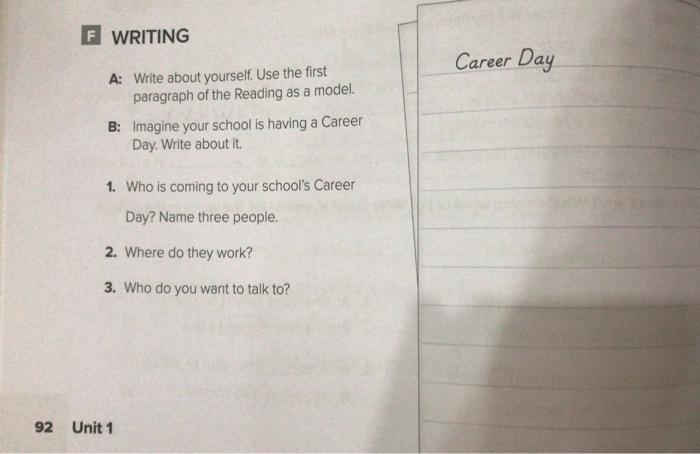 F WRITING
A: Write about yourself. Use the first
paragraph of the Reading as a model.
B: Imagine your school is having a Career
Day. Write about it.
1. Who is coming to your school's Career
Day? Name three people.
2. Where do they work?
3. Who do you want to talk to?
92 Unit 1
Career Day